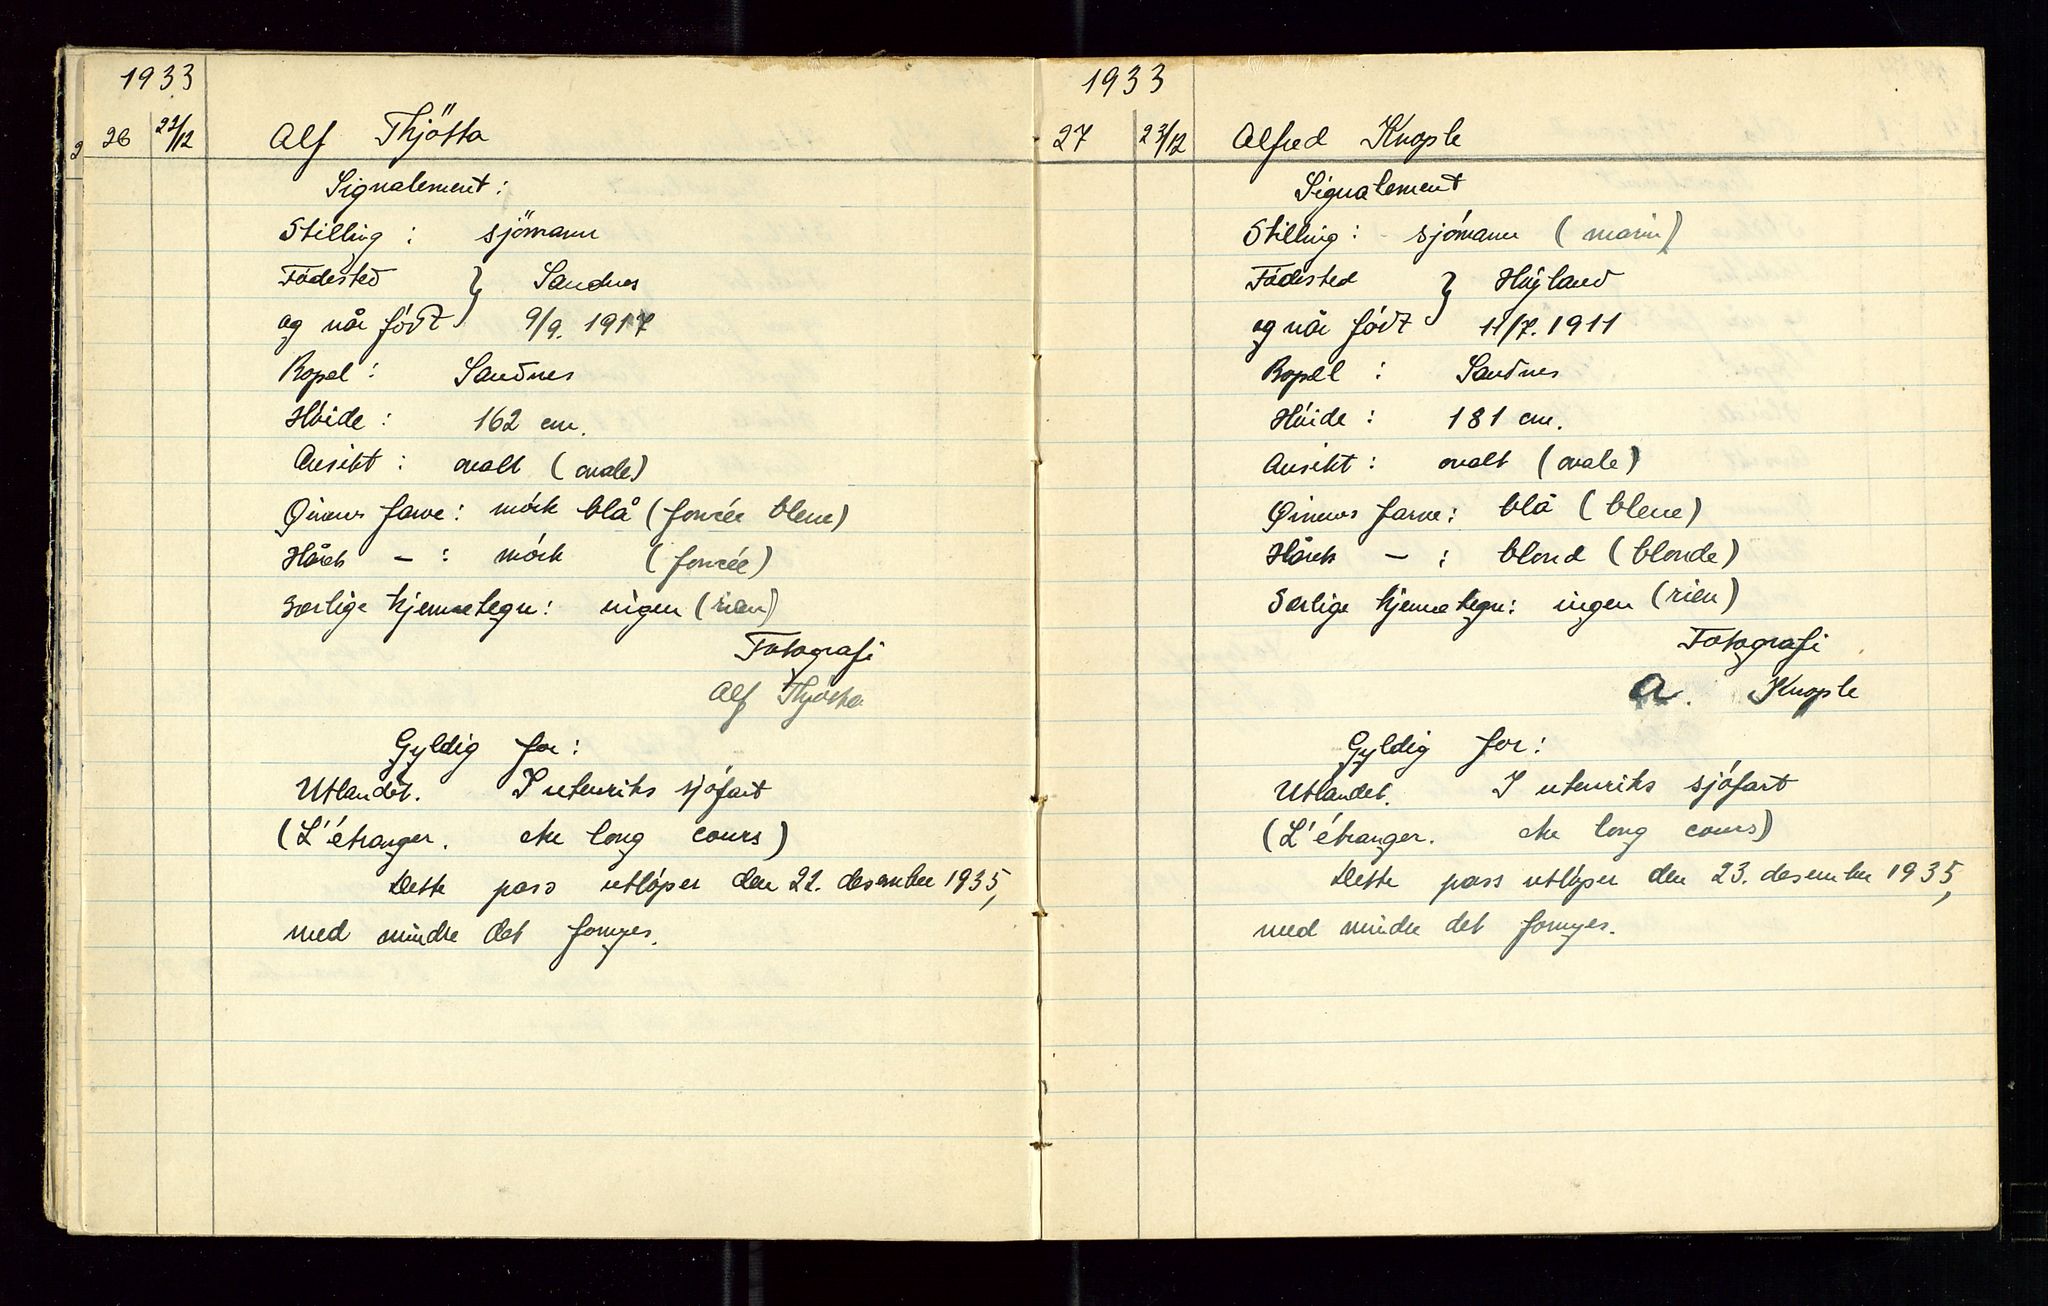 1933
26 22/12 Alf Thjötta
Signalement:
Stilling: sjömann
Födested } Sandnes
og når födt 9/9. 1917
Bopel: Sandnes
Höide: 162 cm.
Ansikt: ovalt (ovale)
Öinens farve: mörk blå (foncée bleue)
Hårets — : mörk (foncée)
Særlige kjennetegn: ingen (rien)
Fotografi
Alf Thjötta
Gyldig for:
Utlandet. I utenriks sjöfart
(L'étranger. che long cours)
Dette pass utlöper den 22. desember 1935,
med mindre det fornyes.
1933
27 23/12 Alfred Knople
Signalement
Stilling: sjómann (marin)
Födested } Höyland
og når födt 11/7. 1911
Bopel: Sandnes
Höide: 181 cm.
Ansikt: ovalt (ovale)
Öinenes farve: blå (bleue)
Hårets — : blond (blonde)
Særlige kjennetegn: ingen (rien)
Fotografi
A. Knople
Gyldig for:
Utlandet. I utenriks sjöfart
(L'étranger. che long cours)
Dette pass utlöper den 23. desember 1935,
med mindre det fornyes.